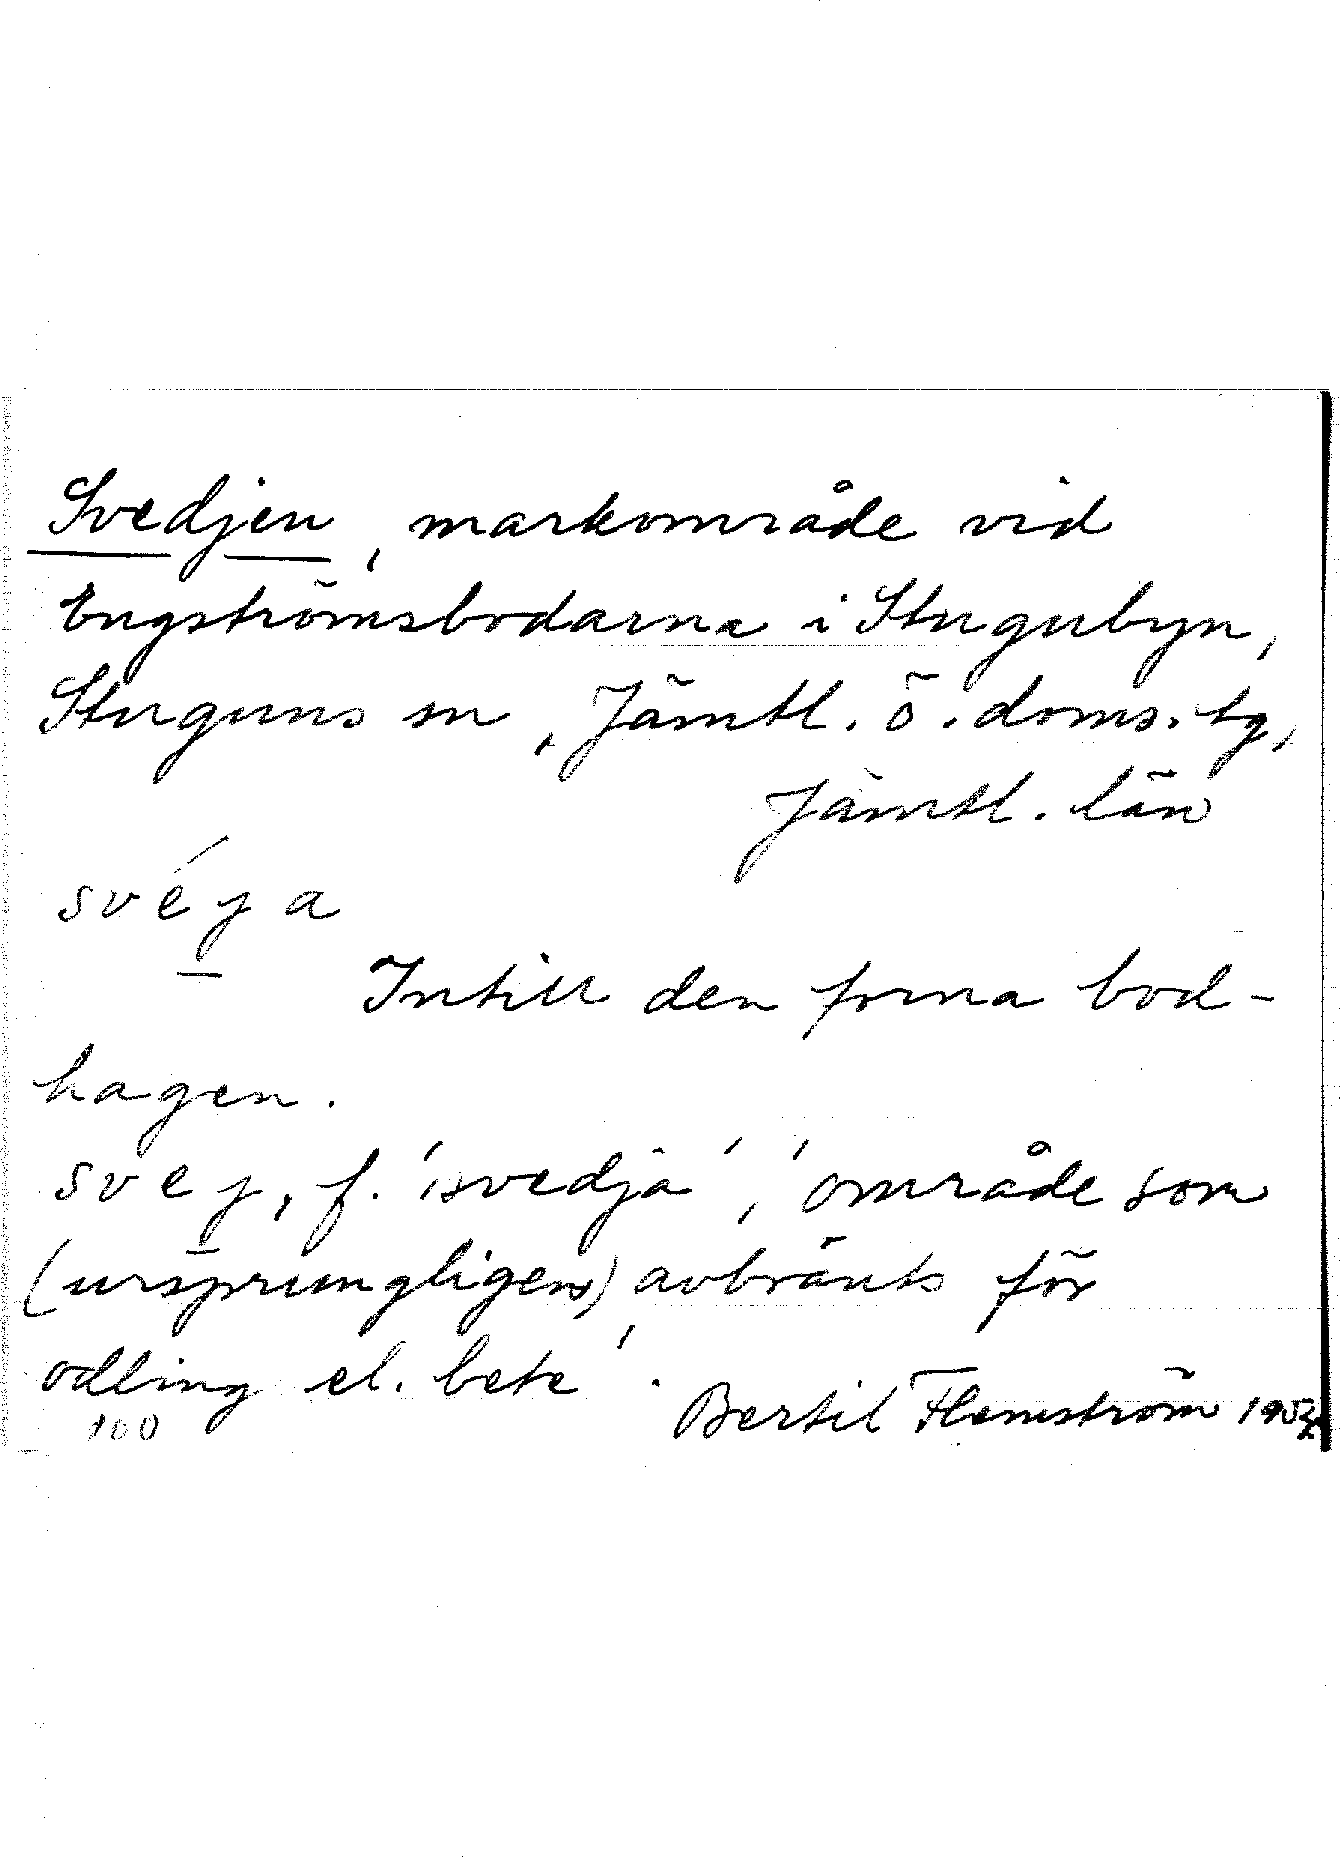 Svedjen, markområde vid
Engströmsbodarna i Stugubyn,
Stuguns sn, Jämtl. ö. doms. tg,
Jämtl. län
svéya
Intill den forna bod-
hagen.
svey, f. 'svedja', 'område som
(ursprungligen) avbränts för
odling el. bete'.
100 Bertil Flemström